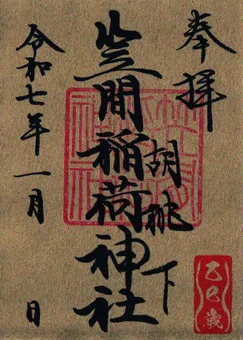 奉拝
乙巳歳
胡桃下
笠間稲荷神社
令和七年一月 日